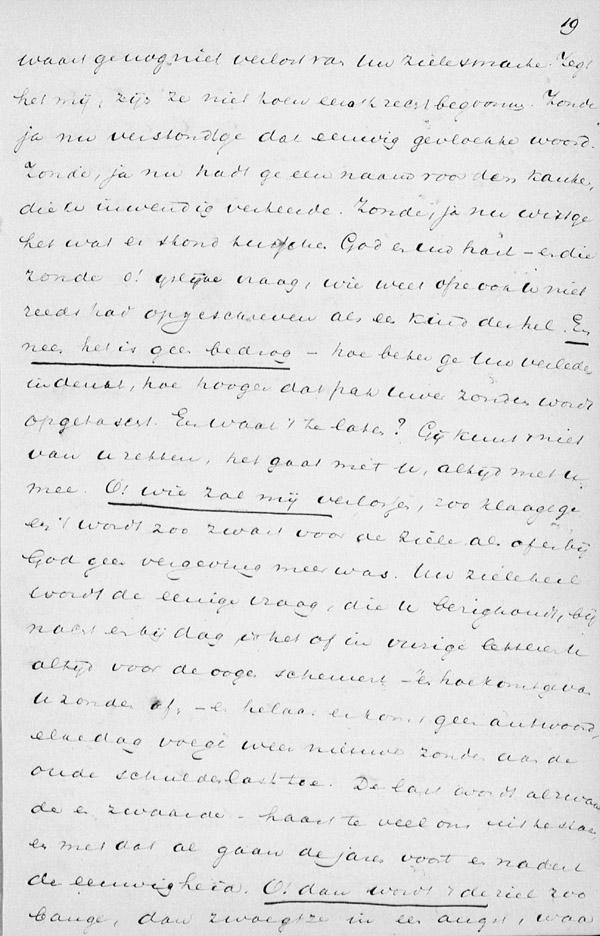 19
waart ge nog niet verlost van Uw zielesmarte. Zegt
het mij, zijn ze niet toen eerst recht begonnen. Zonde
ja nu verstondtge dat eeuwig gevloekte woord.
Zonde, ja nu hadt ge een naam voor den kanker,
die U inwendig verteerde. Zonde, ja nu wistge
het wat er stond tusschen God en Uw hart – en die
zonde o! vraag, wie weet of ze voor U niet
reeds had opgeschreven als een kind der hel. En
neen het is geen bedrog – hoe beter ge Uw verleden
indenkt, hoe hooger dat pak Uwer zonden wordt
opgetast. En waar 't te laten? Gij kunt 't niet
van U zetten, het gaat met U, altijd met U
mee. O! wie zal mij verlossen, zoo klaagt ge
en 't wordt zoo zwart voor de ziele als of er bij
God geen vergeving meer was. Uw zieleheil
wordt de eenige vraag, die U bezighoudt, bij
nacht en bij dag is het of in vurige letteren U
altijd voor de oogen schemert – en hoe komt ge van
U zonden af, – en helaas er komt geen antwoord,
elke dag voegt weer nieuwe zonden aan de
oude schuldenlast toe. De last wordt al zwaar
der en zwaarder – haast te veel om uit te staan
en met dat al gaan de jaren voort en nadert
de eeuwigheid. O! dan wordt 't de ziel zoo
bange, dan zwoegt ze in een angst, waar